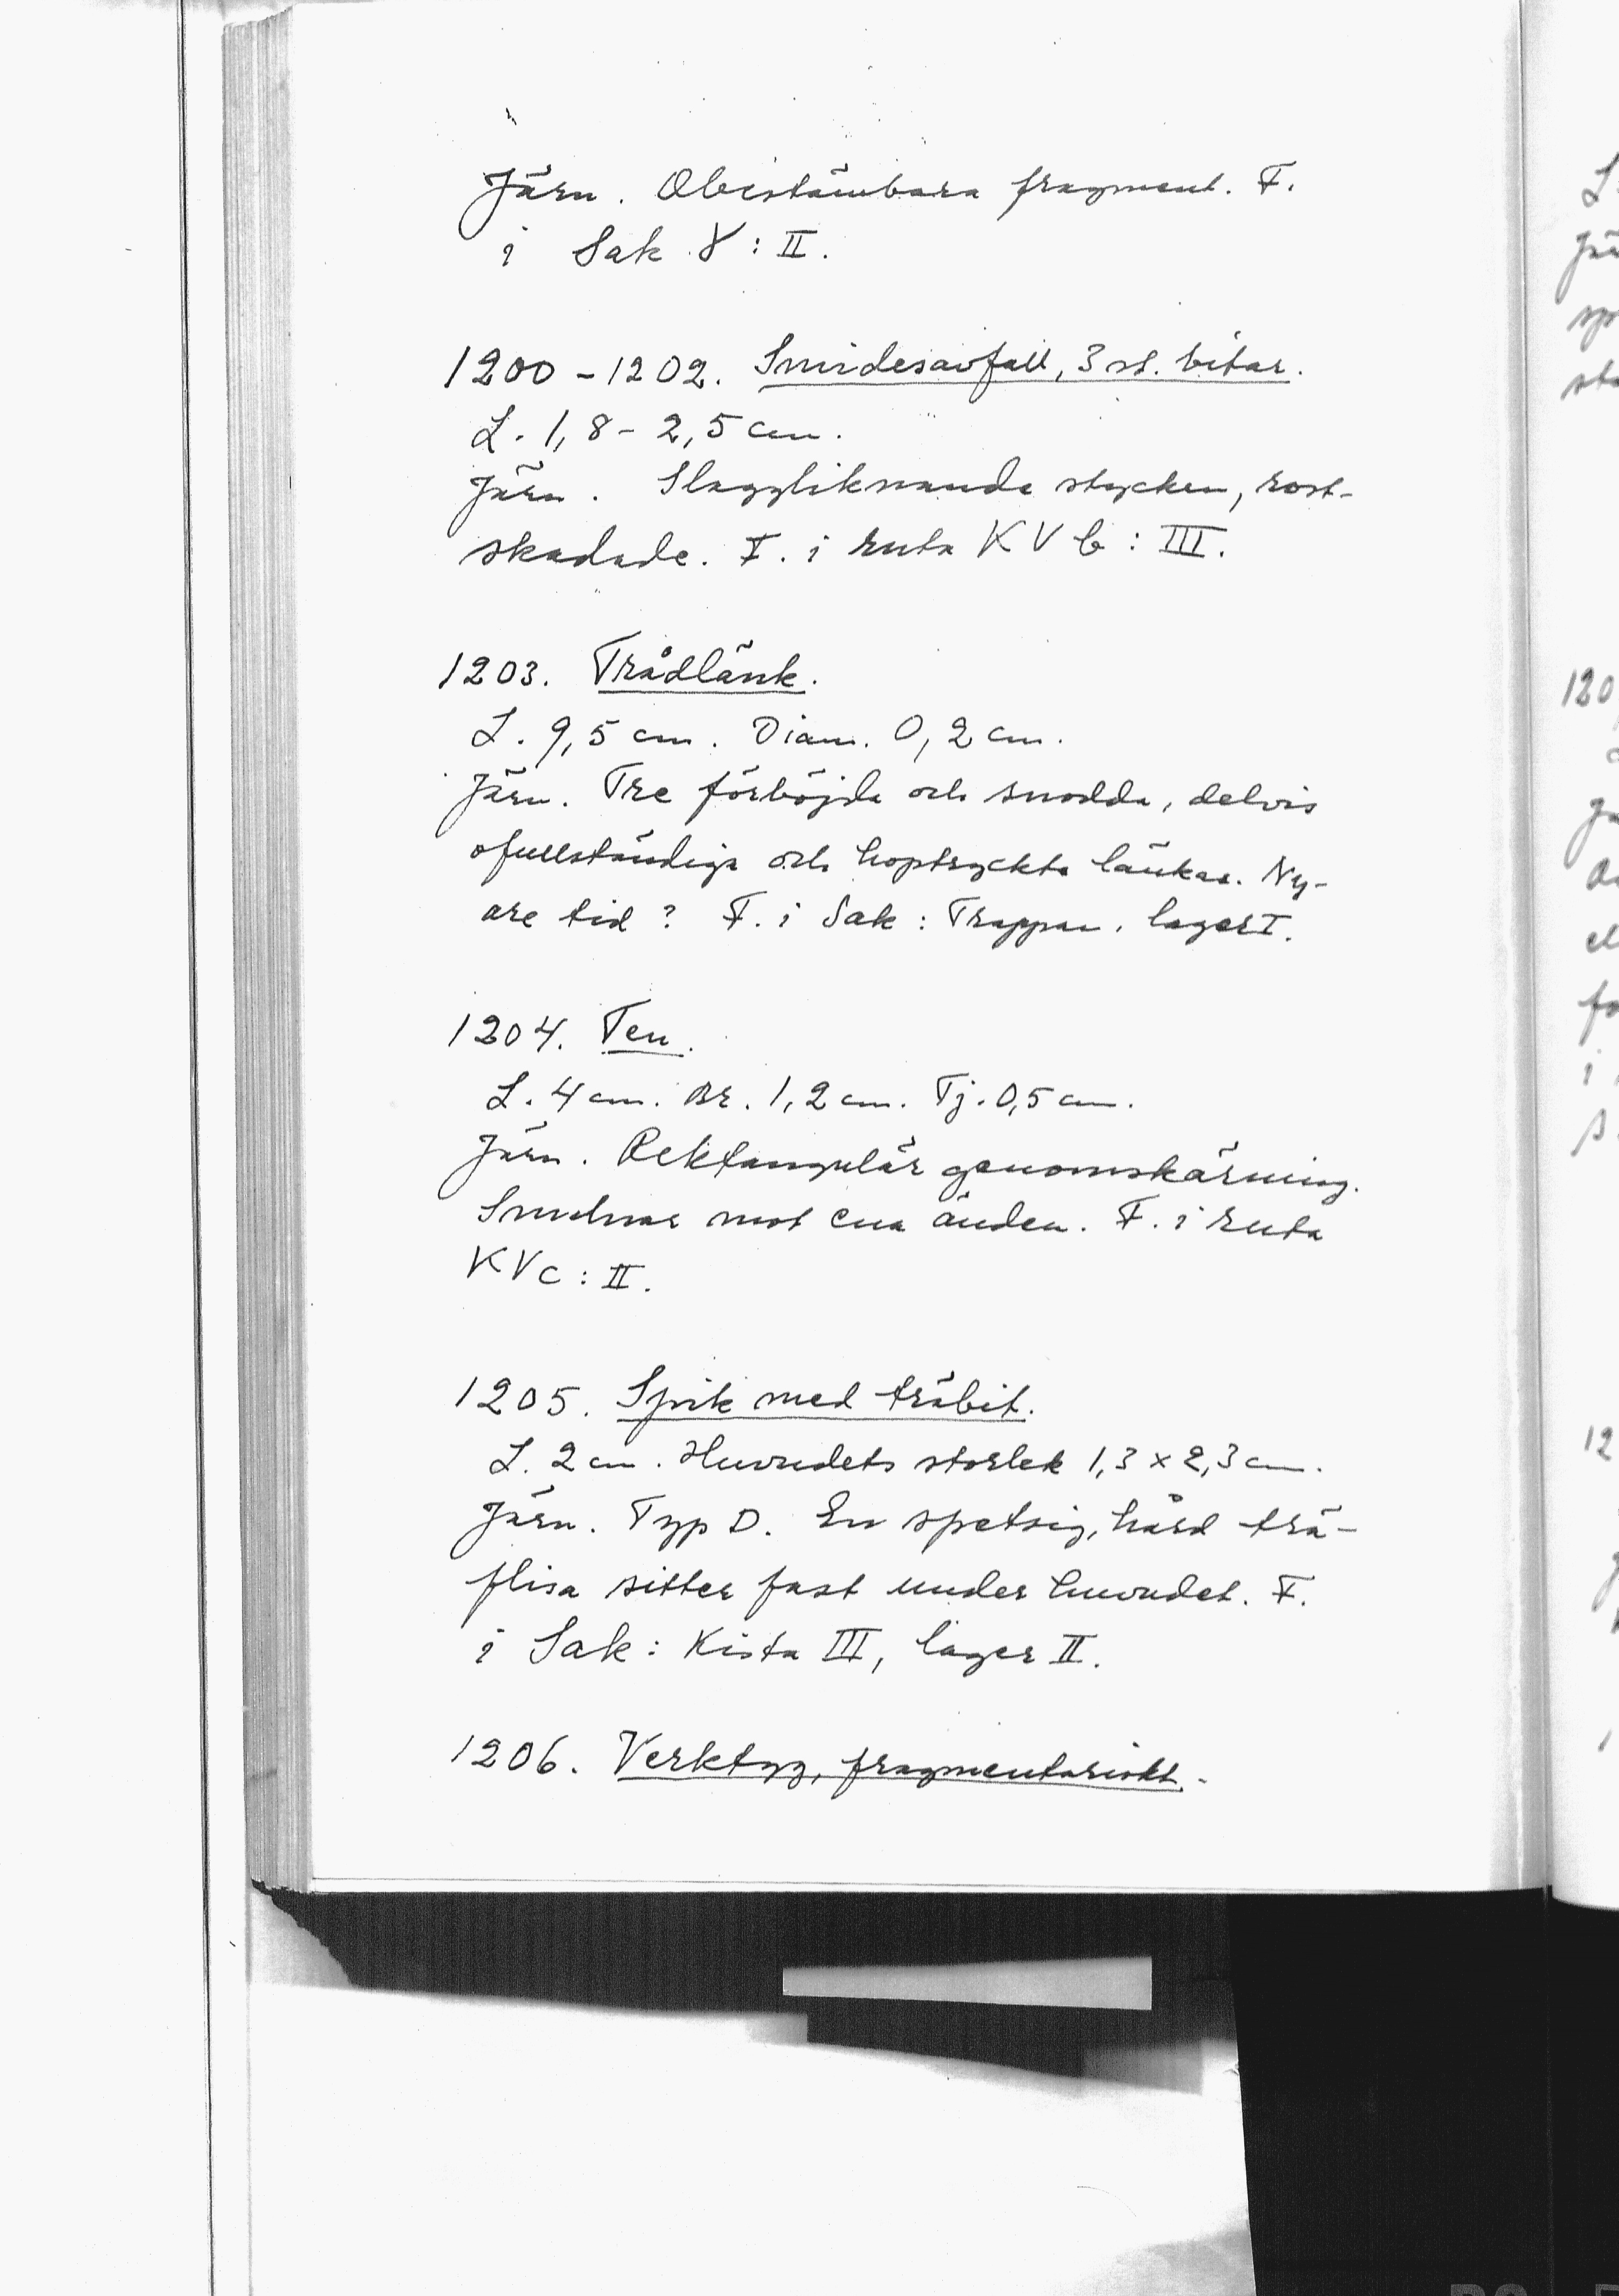 Järn. Obestämbara fragment. F.
i Sak 8 : II.
1200 - 1202. Smidesavfall, 3 st. bitar.
L. 1,8 - 2,5 cm.
Järn. Slaggliknande stycken, rost-
skadade. F. i ruta KVb : III.
1203. Trådlänk.
L. 9,5 cm. Diam. 0,2 cm.
Järn. Tre förböjda och snodda, delvis
ofullständiga och hoptryckta länkar. Ny-
are tid? F. i Sak : Trappan, lager I.
1204. Ten.
L. 4 cm. Br. 1,2 cm. Tj. 0,5 cm.
Järn. Rektangulär genomskärning.
Smalnar mot ena änden. F. i ruta
KVc : II.
1205. Spik med träbit.
L. 2 cm. Huvudets storlek 1,3 x 2,3 cm.
Järn. Typ D. En spetsig, hård trä-
flisa sitter fast under huvudet. F.
i Sak : Kista III, lager II.
1206. Verktyg, fragmentariskt.